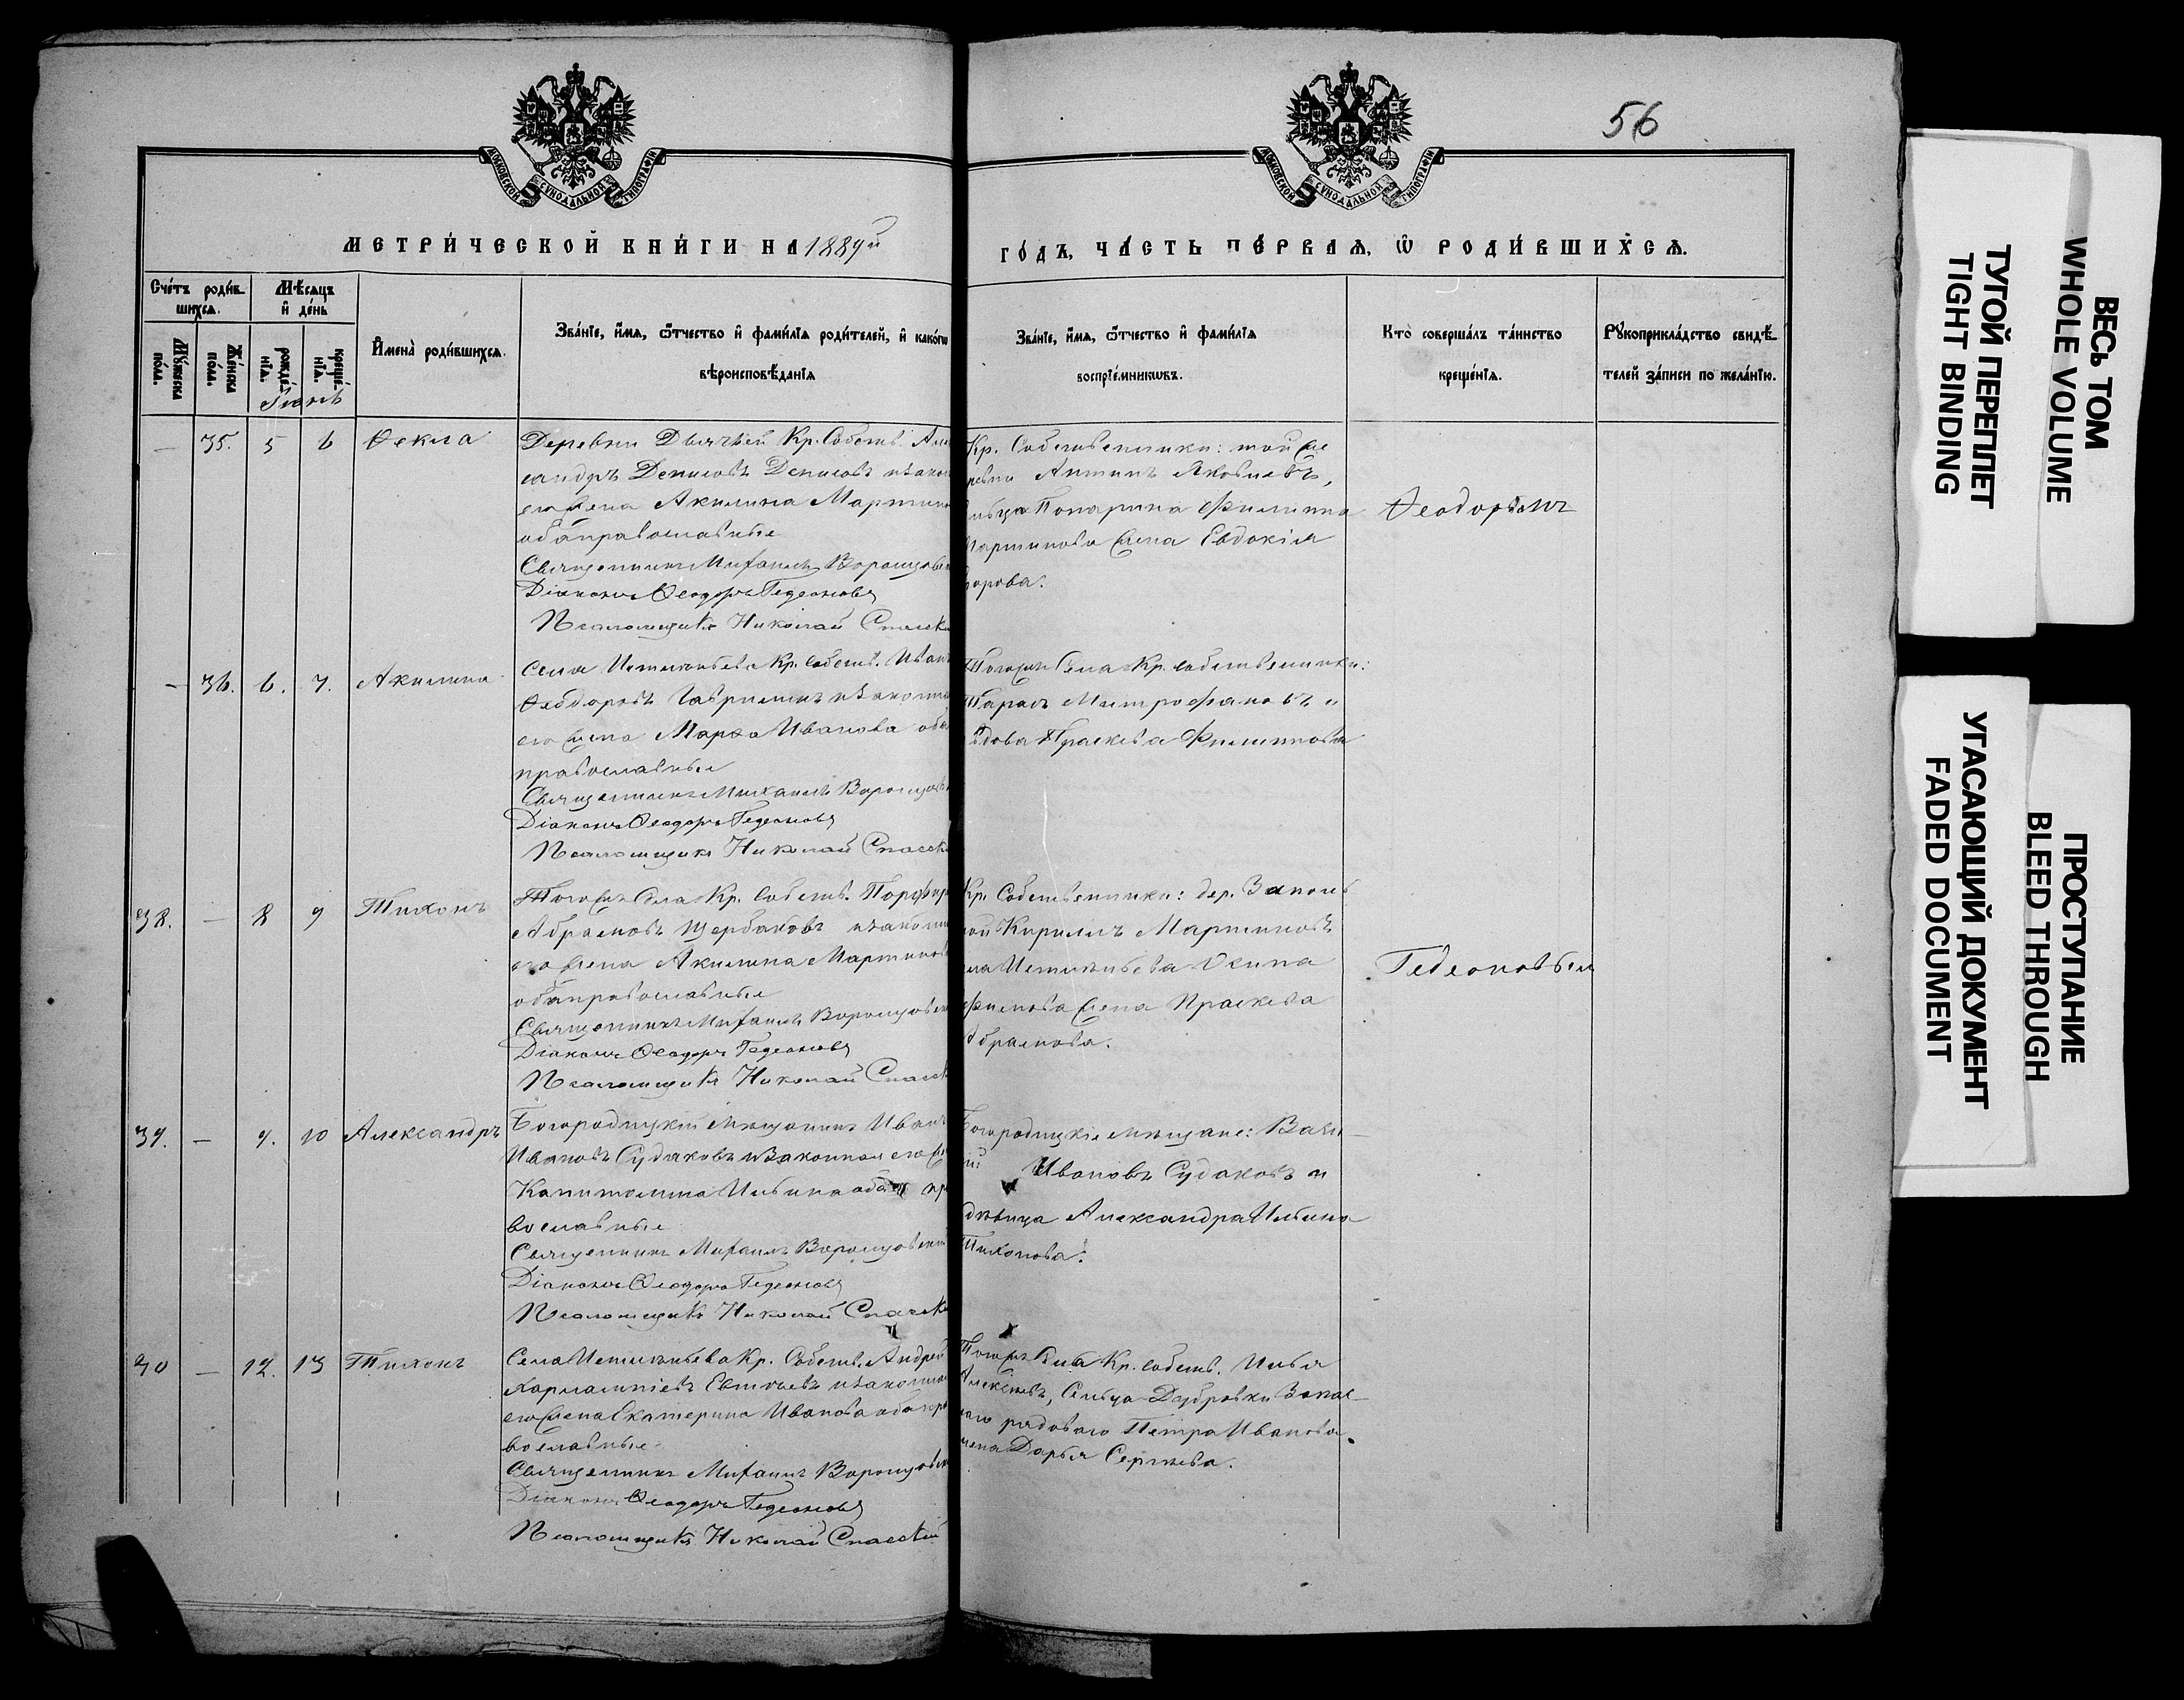 56
МОСКОВСКОЙ СѴНОДАЛЬНОЙ ТИПОГРАФІИ
МОСКОВСКОЙ СѴНОДАЛЬНОЙ ТИПОГРАФІИ
МЕТРИ́ЧЕСКОЙ КНИ́ГИ НА 1889й
ГО́ДЪ, ЧА́СТЬ ПЕ́РВАѦ, Ѿ РОДИ́ВШИХСѦ.
Сче́тъ роди́в-
шихсѧ.
Мѣ́сѧцъ
и҆ де́нь
Мꙋ́жеска
по́ла.
Же́нска
по́ла.
рожде́-
нїѧ.
креще́-
нїѧ.
И҆мена̀ роди́вшихсѧ.
Зва́нїе, и҆́мѧ, ѻ҆́тчество и҆ фамі́лїѧ роди́телей, и҆ како́гѡ
вѣроисповѣ́данїѧ
Зва́нїе, и҆́мѧ, ѻ҆́тчество и҆ фамі́лїѧ
воспрїе́мникѡвъ.
Кто̀ соверша́лъ та́инство
креще́нїѧ.
Рꙋкоприкла́дство свидѣ́-
телей за́писи по жела́нїю.
— 35. 5 6 Ѳекла
Деревни Кр. Собств. Але
сандръ Денисовъ Денисовъ изакон
его жена Акилина Мартино
оба православные
Священникъ Михаилъ
Діаконъ Ѳеодоръ Гедеоновъ
Псаломщикъ Николай Спасск
Кр. Собственники: той же
ревни Антипъ Яковлевъ,
Филиппа
Мартинова жена Евдокія
Ѳеодоромъ
— 36. 6. 7. Акилина
Села Кр. Собств. Иван
Ѳеодоровъ Гавриминъ изаконна
его жена Марѳа Иванова оба
православные
Священникъ Михаилъ
Діаконъ Ѳеодоръ Гедеоновъ
Псаломщикъ Николай Спасск
Тогоже Села Кр. собственники:
Тарасъ Митрофановъ и
вдова Праскева Филиппова
38. — 8 9 Тихонъ
Тогоже Села Кр. Собств. Порфир
Абрамовъ Щербаковъ изаконна
его жена Акилина Мартинов
оба православные
Священникъ Михаилъ
Діаконъ Ѳеодоръ Гедеоновъ
Псаломщикъ Николай Спасск
Кр. Собственники: дер.
Кирилъ Мартиновъ
Осипа
жена Праскева
Абрамова.
Гедеоновым
39. — 9. 10 Александръ
Богородицкій Мѣщанинъ Иванъ
Ивановъ Судаковъ изаконная его ж
Капитолина Ильина оба пр
вославные
Священникъ Михаилъ
Діаконъ Ѳеодоръ Гедеоновъ
Псаломщикъ Николай Спасск
Богородицкіе мѣщане: Васи-
лій Ивановъ Судаковъ и
дѣвица Александра Ильина
Тихонова.
30 — 12. 13 Тихонъ
Села Кр. Собств. Андрей
Харлампіевъ изаконная
его жена Екатерина Иванова оба пра
вославные
Священникъ Михаилъ
Діаконъ Ѳеодоръ Гедеоновъ
Псаломщикъ Николай Спасскій
Тогоже Села Кр. собств. Илья
Алексѣевъ, Сельца Дубровки Запас-
наго рядоваго Петра Иванова
жена Дарья Сергѣева.
ВЕСЬ ТОМ
WHOLE VOLUME
ТУГОЙ ПЕРЕПЛЕТ
TIGHT BINDING
УГАСАЮЩИЙ ДОКУМЕНТ
FADED DOCUMENT
ПРОСТУПАНИЕ
BLEED THROUGH